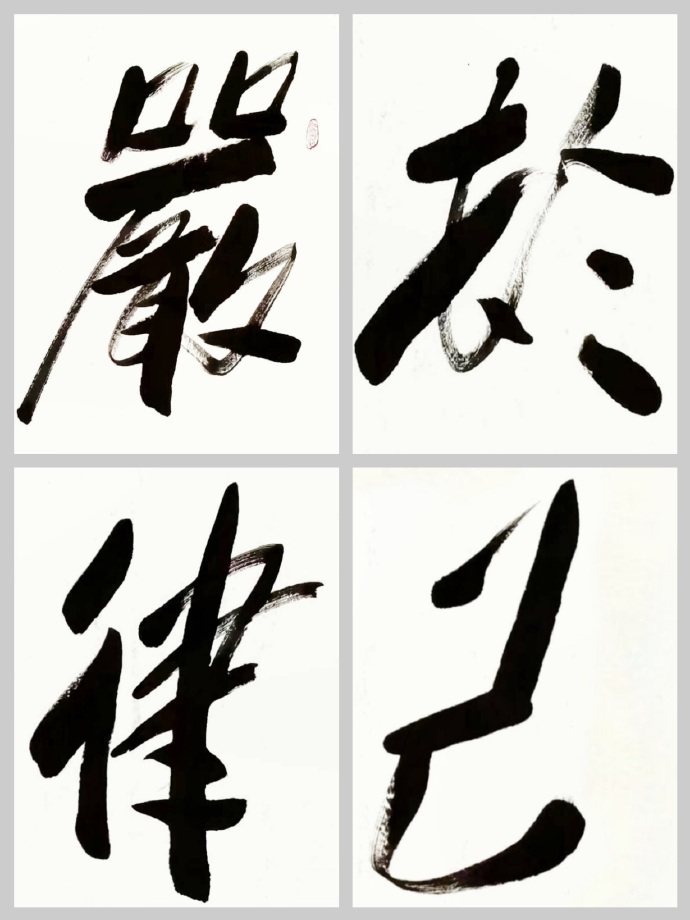 嚴於
律己